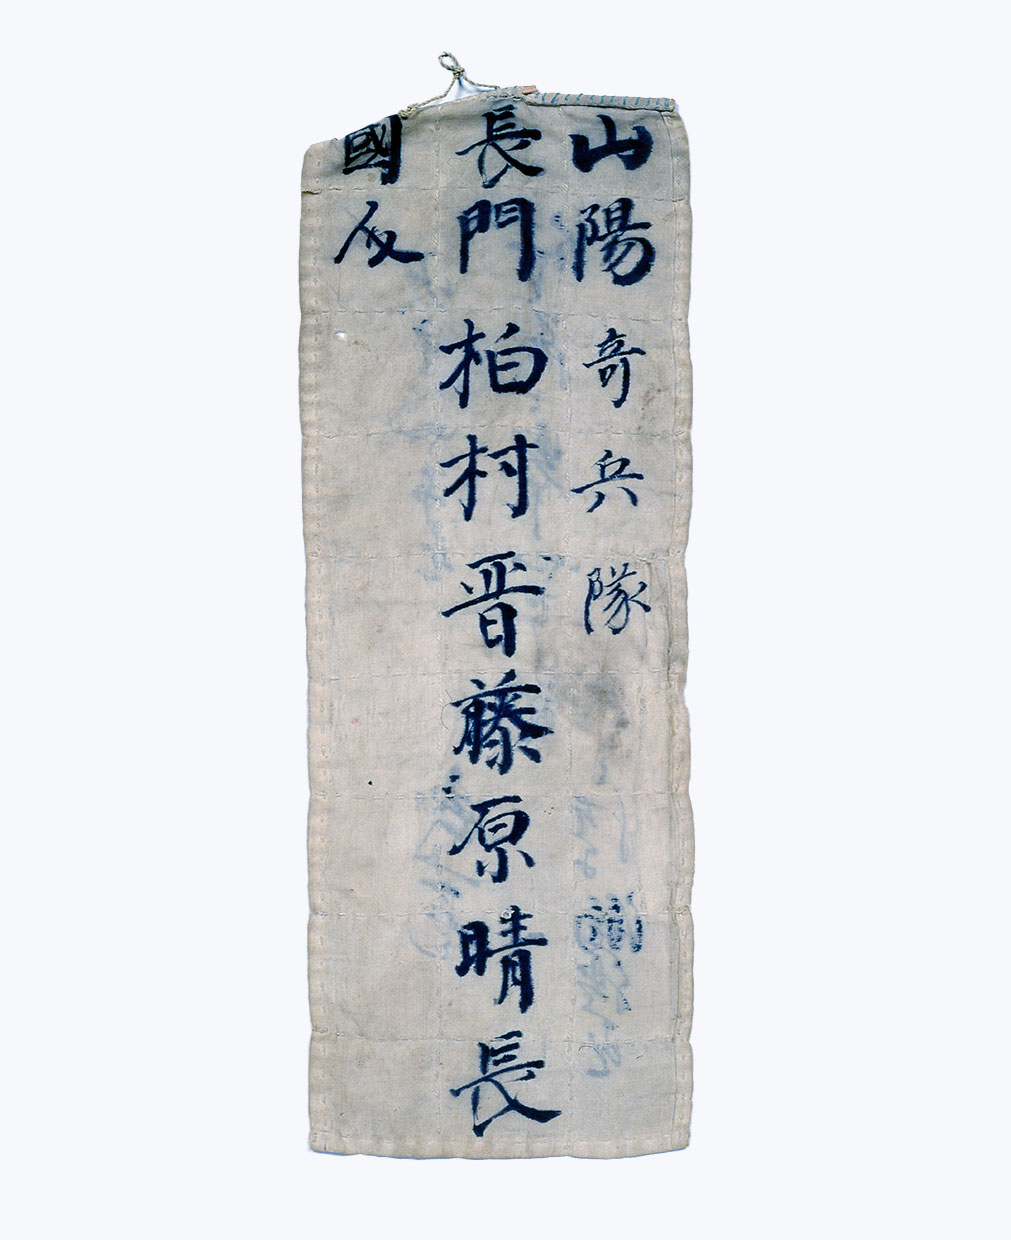 山陽奇兵隊
長門柏村晋藤原晴長
國